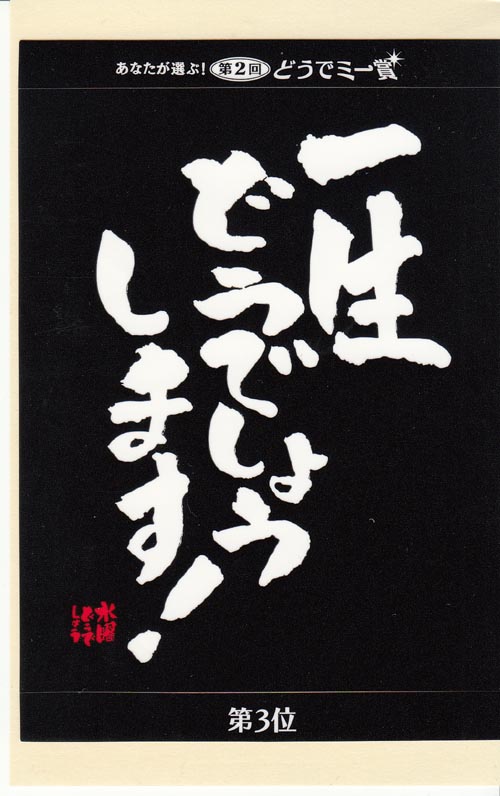 あなたが選ぶ！ 第2回 どうでミー賞
一生
どうでしょう
します！
水曜
どうで
しょう
第3位